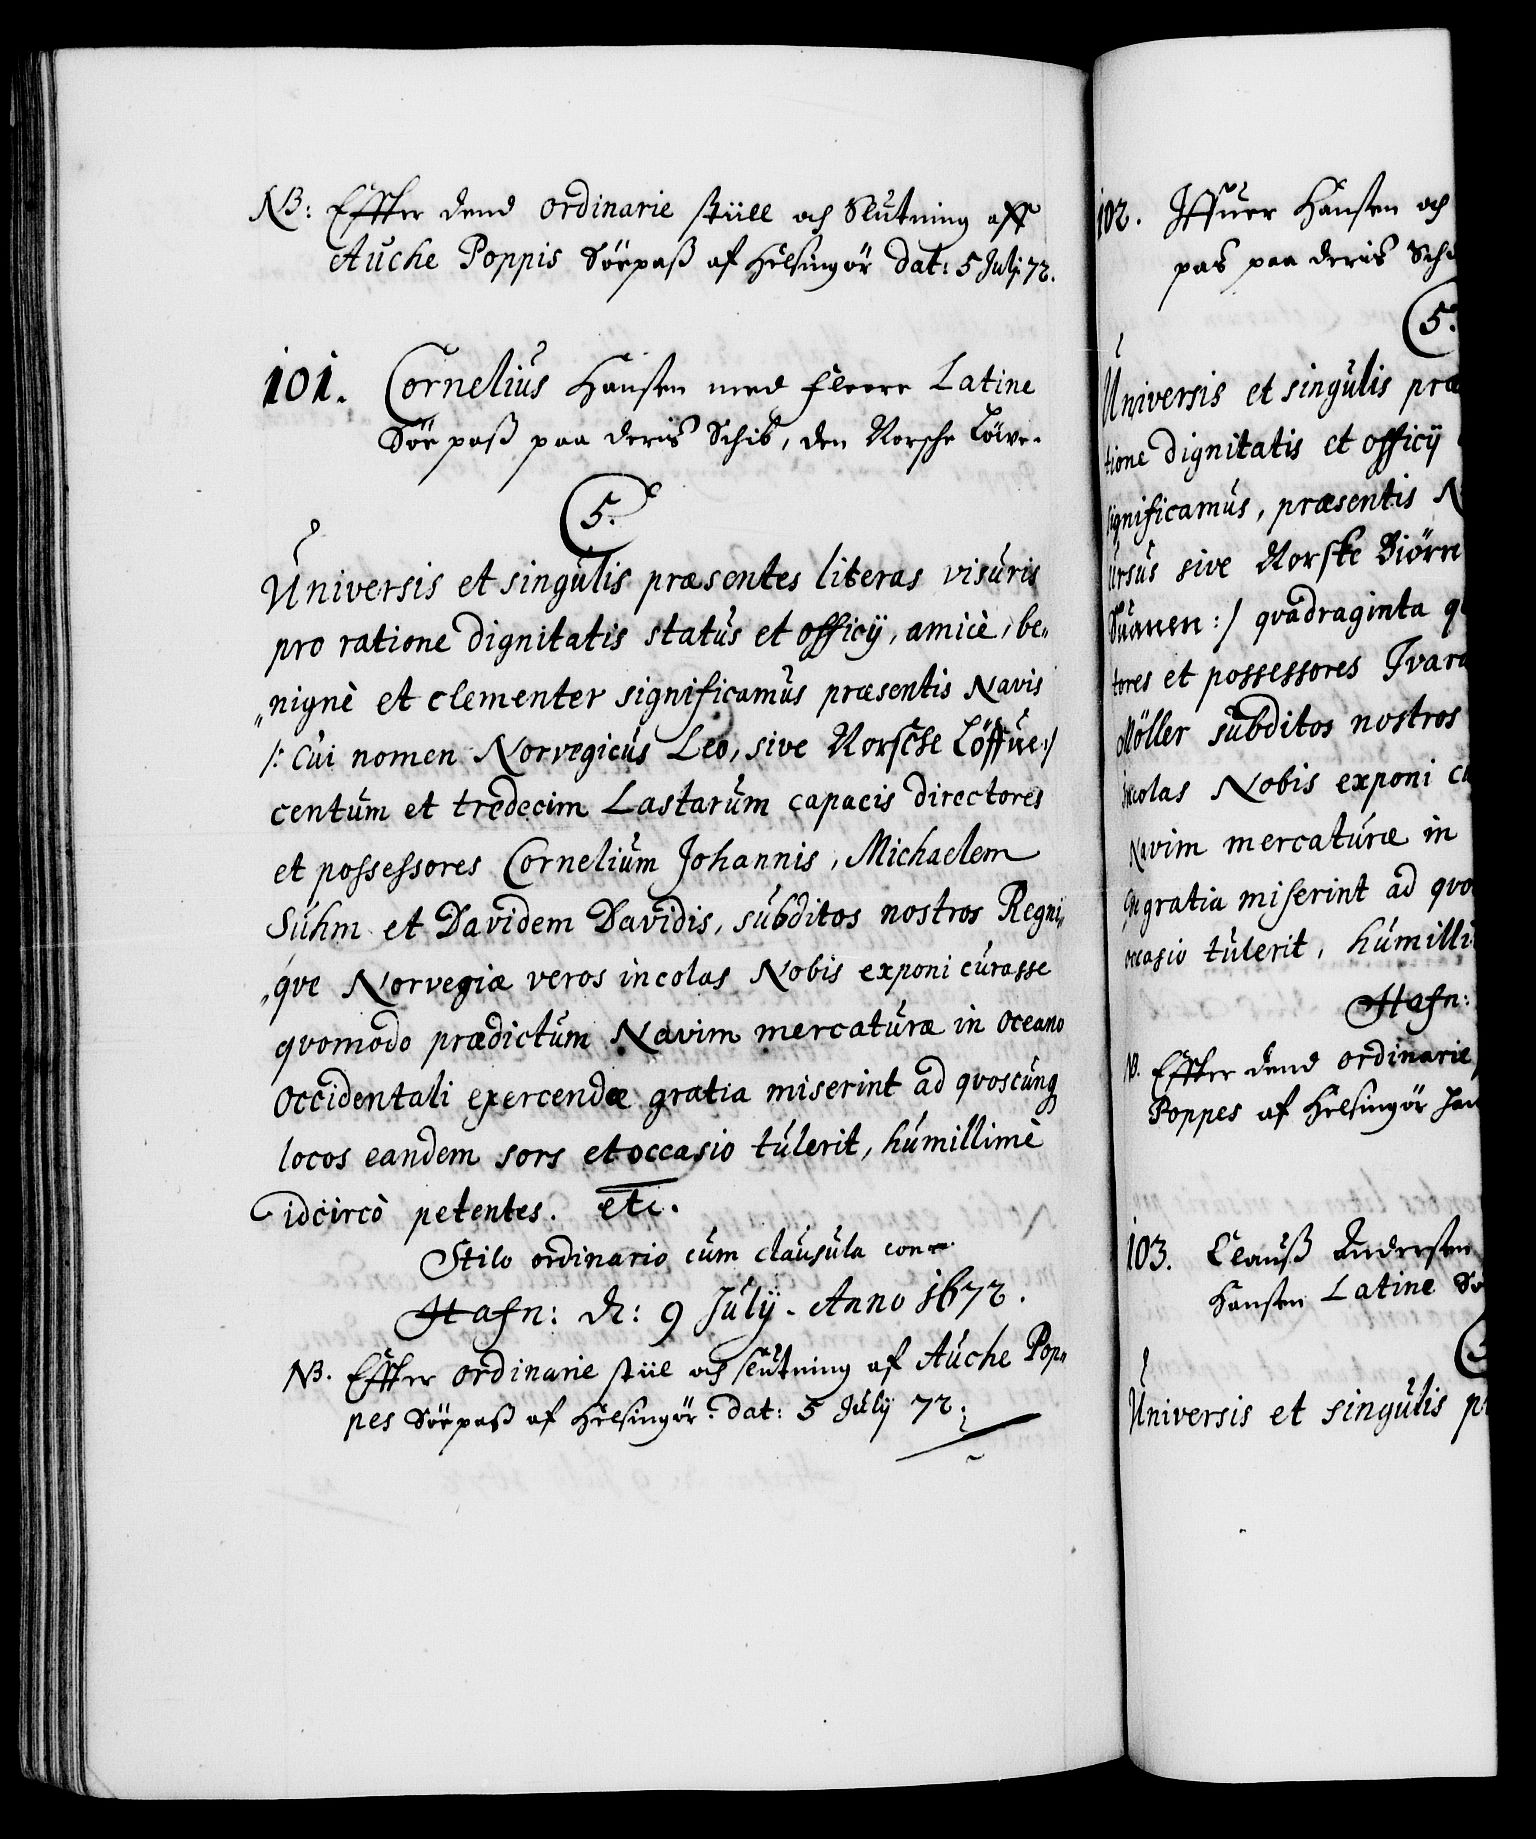 NB: Effter dend ordinarie stiill och Slutning aff
Auche Poppis Söepaß af Helsingör dat: 5 Julj 72.
101. Cornelius Hansen med fleere Latine
Söe paß paa deris Schib, den Norsche Löwe.
5.
Universis et singulis præsentes literas visuris
pro ratione dignitatis status et officij, amicè, be„
„nignè et clementer significamus præsentis Navis
/: Cui nomen Norvegicus Leo, sive Norsche Löffue :/
centum et tredecim Lastarum capacis directores
et possessores Cornelium Johannis, Michaelem
Suhm et Davidem Davidis, subditos nostros Regni„
„qve Norvegiæ veros incolas Nobis exponi curasse
qvomodo prædictum Navim mercaturæ in oceano
Occidentali exercendæ gratia miserint ad qvoscunq
locos eandem sors et occasio tulerit, humillimè
idcircò petentes. etc.
Stilo ordinario cum clausula con
Hafn: d: 9 Julij. Anno 1672.
NB. Effter ordinarie stiil och slutning af Auche Pop„
pes Söepaß af Helsingör. dat: 5 July 72.
102. Iffuer Hansen och
pas paa deris Schi
5.
Universis et singulis præ
tione dignitatis et officij
significamus, præsentis N
Ursus sive Norske Biörn
Suanen :/ qvadraginta q
tores et possessores Ivara
Möller subditos nostros
incolas Nobis exponi cu
Navim mercaturæ in
gratia miserint ad qvo
occasio tulerit, humilli
Hafn:
NB. Effter dend ordinarie
Poppes af Helsingör
103. Clauß Andersen
Hansen Latine Sö
Universis et singulis pr